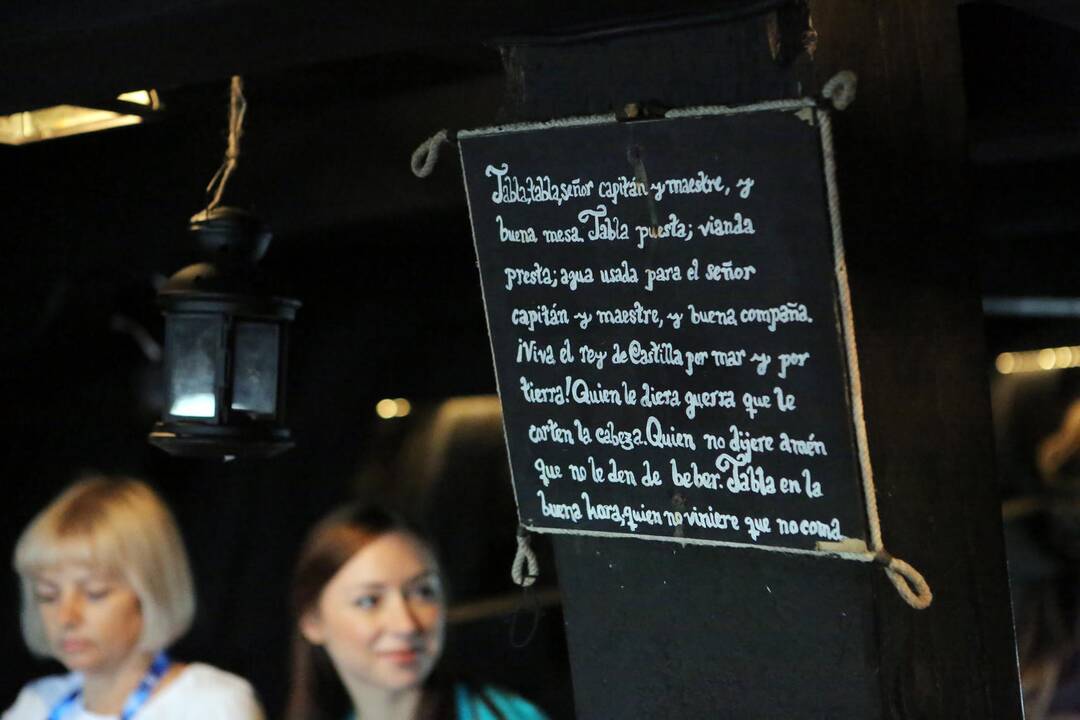 Tabla, tabla, señor capitán y maestre, y
buena mesa. Tabla puesta; vianda
presta; agua usada para el señor
capitán y maestre, y buena compaña.
¡Viva el rey de Castilla por mar y por
tierra! Quien le diera guerra que le
corten la cabeza. Quien no dijere amén
que no le den de beber. Tabla en la
buena hora, quien no viniere que no coma